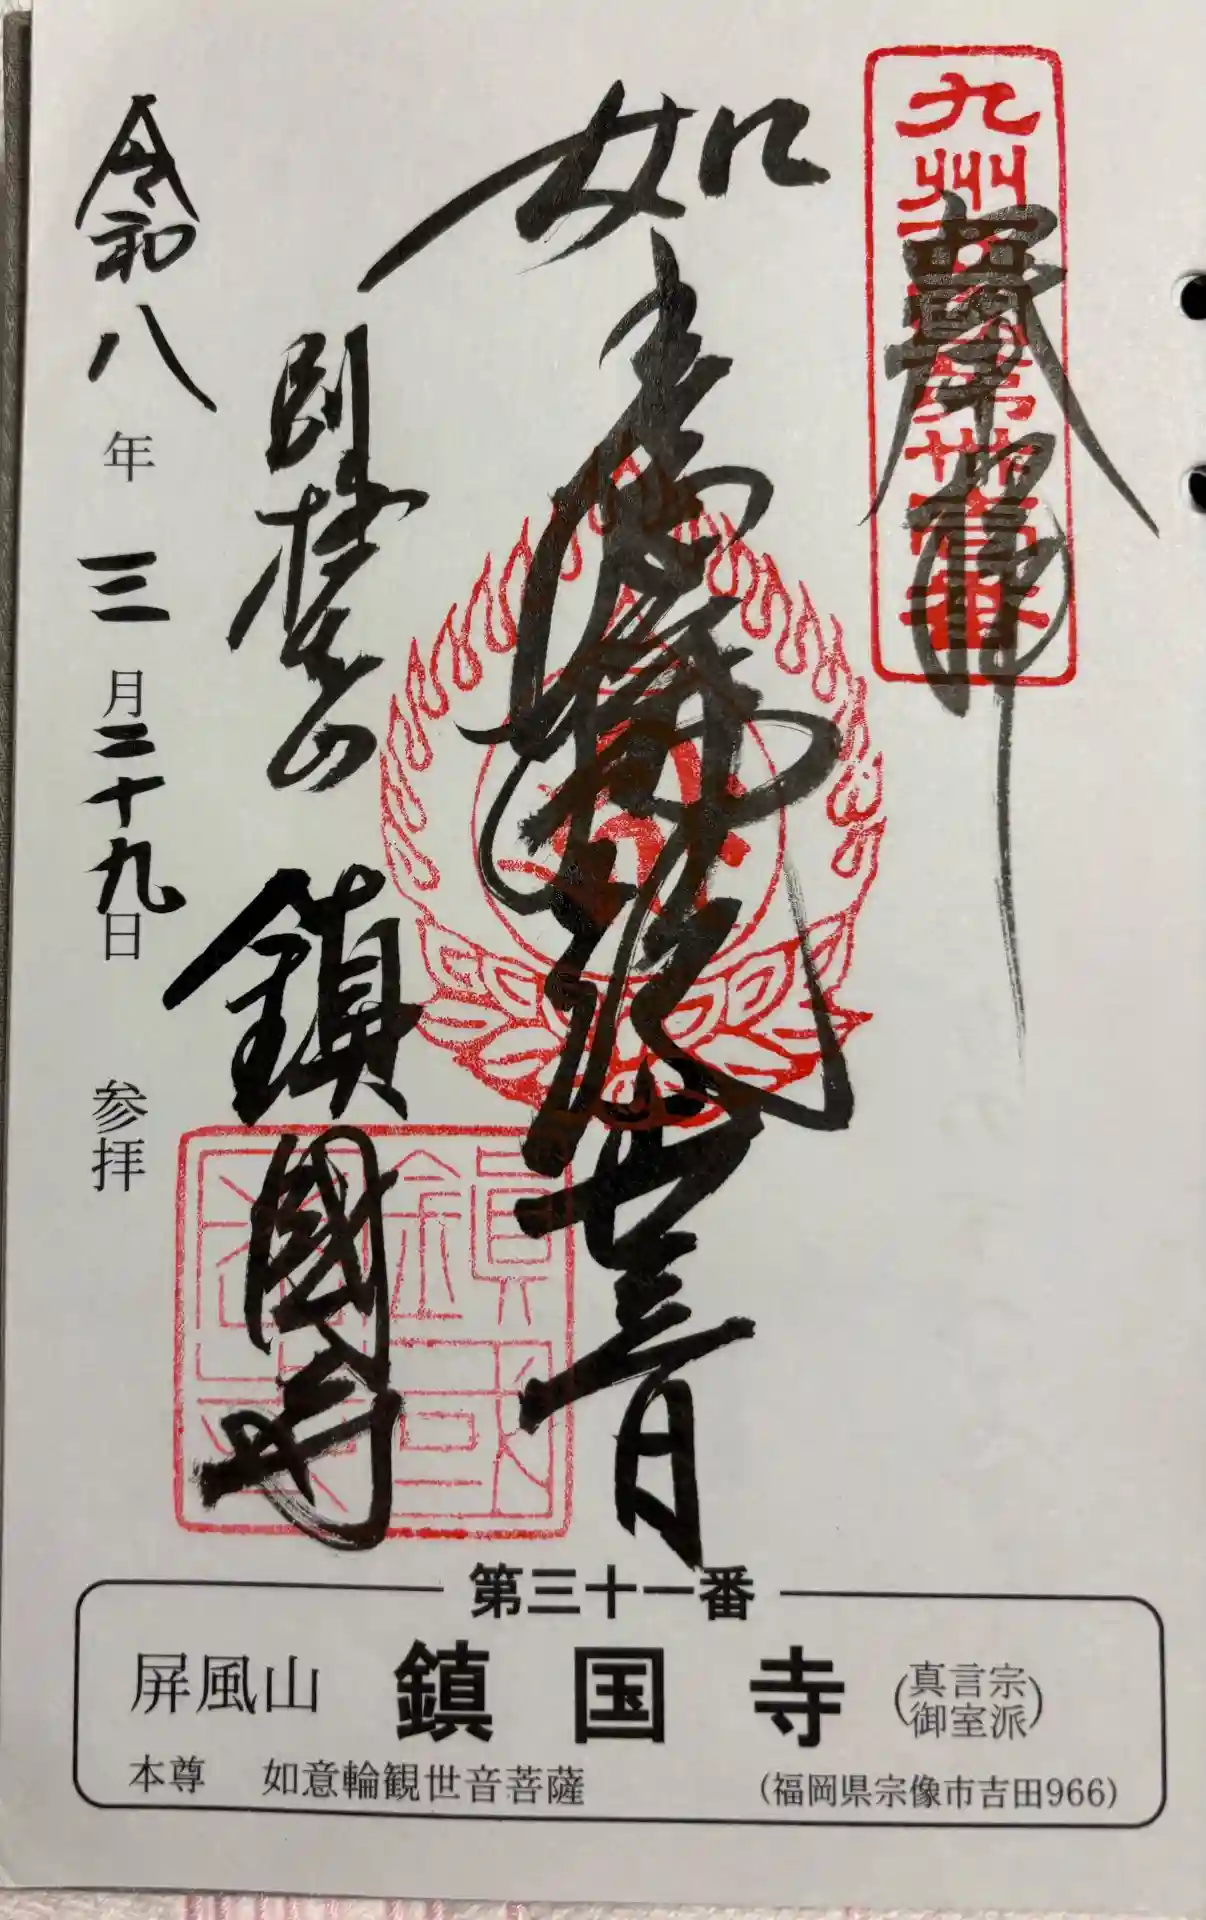 奉拝
九州西國第卅壹番
如意輪観世音
別格本山 鎮國寺
令和八年三月二十九日 参拝
第三十一番
屏風山 鎮国寺 (真言宗御室派)
本尊 如意輪観世音菩薩 (福岡県宗像市吉田966)